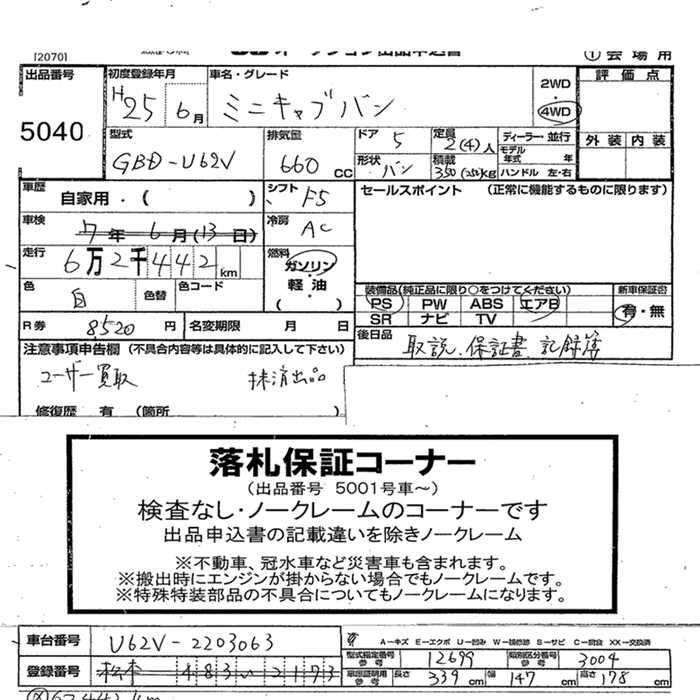 [2070]
オークション出品申込書 ①会場用
出品番号 初度登録年月 車名・グレード 2WD 評価点
5040 H25 6月 ミニキャブバン 4WD
型式 排気量 ドア 5 定員 2(4)人 ディーラー・並行 外装 内装
GBD-U62V 660cc 形状 バン 積載 350(250)kg モデル年式 年 ハンドル 左・右
車歴 自家用・( ) シフト F5 セールスポイント (正常に機能するものに限ります)
車検 7年6月(13日) 冷房 AC
走行 6万2千442km 燃料 ガソリン・軽油 ( )
色 白 色替 色コード 装備品(純正品に限り○をつけてください) 新車保証書
PS PW ABS エアB 有・無
SR ナビ TV
R券 8520円 名変期限 月 日 後日品 取説、保証書 記録簿
注意事項申告欄 (不具合内容等は具体的に記入して下さい)
ユーザー買取 抹消出品
修復歴 有 (箇所
落札保証コーナー
(出品番号 5001号車～)
検査なし・ノークレームのコーナーです
出品申込書の記載違いを除きノークレーム
※不動車、冠水車など災害車も含まれます。
※搬出時にエンジンが掛からない場合でもノークレームです。
※特殊特装部品の不具合についてもノークレームになります。
車台番号 U62V-2203063 A－キズ E－エクボ U－凹み W－補修跡 S－サビ C－腐食 XX－交換済
型式指定番号 参考 12699 類別区分番号 参考 3004
登録番号 松本 483 い 2173 車庫証明用 参考 長さ 339cm 幅 147cm 高さ 178cm